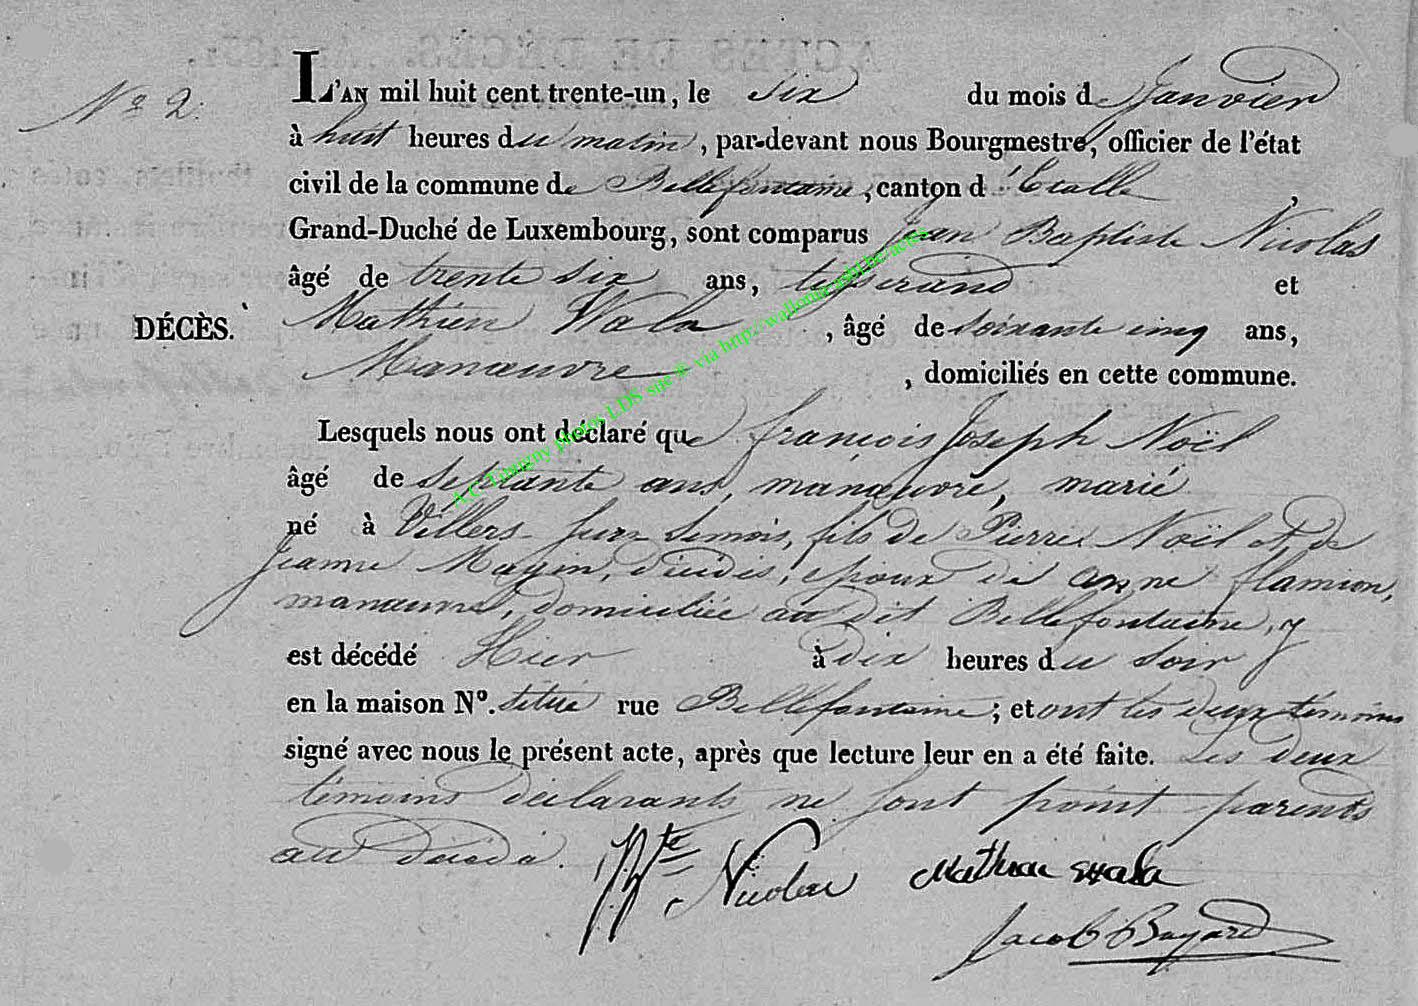 Nº 2.
L'AN mil huit cent trente-un, le six du mois de Janvier
à huit heures du matin, par-devant nous Bourgmestre, officier de l'état
civil de la commune de Bellefontaine, canton d'Etalle,
Grand-Duché de Luxembourg, sont comparus jean Baptiste Nicolas
âgé de trente six ans, tisserand et
DÉCÈS.
Mathieu Wala, âgé de soixante cinq ans,
Manœuvre, domiciliés en cette commune.
Lesquels nous ont déclaré que françois Joseph Noël
âgé de septante ans, manœuvre, marié
né à Villers Sur Semois, fils de Pierre Noël et de
Jeanne Magin, décédés, epoux de anne flamion,
manœuvre, domiciliée au dit Bellefontaine, y
est décédé Hier à dix heures du soir
en la maison Nº. rue Bellefontaine; et ont les deux témoins
signé avec nous le présent acte, après que lecture leur en a été faite. Les deux
témoins déclarants ne sont point parents
au décédé.
Bte Nicolas Mathieu Wala
Jacob Bayard
photos LDS sue ® via http://wallonia-asbl.be/actes